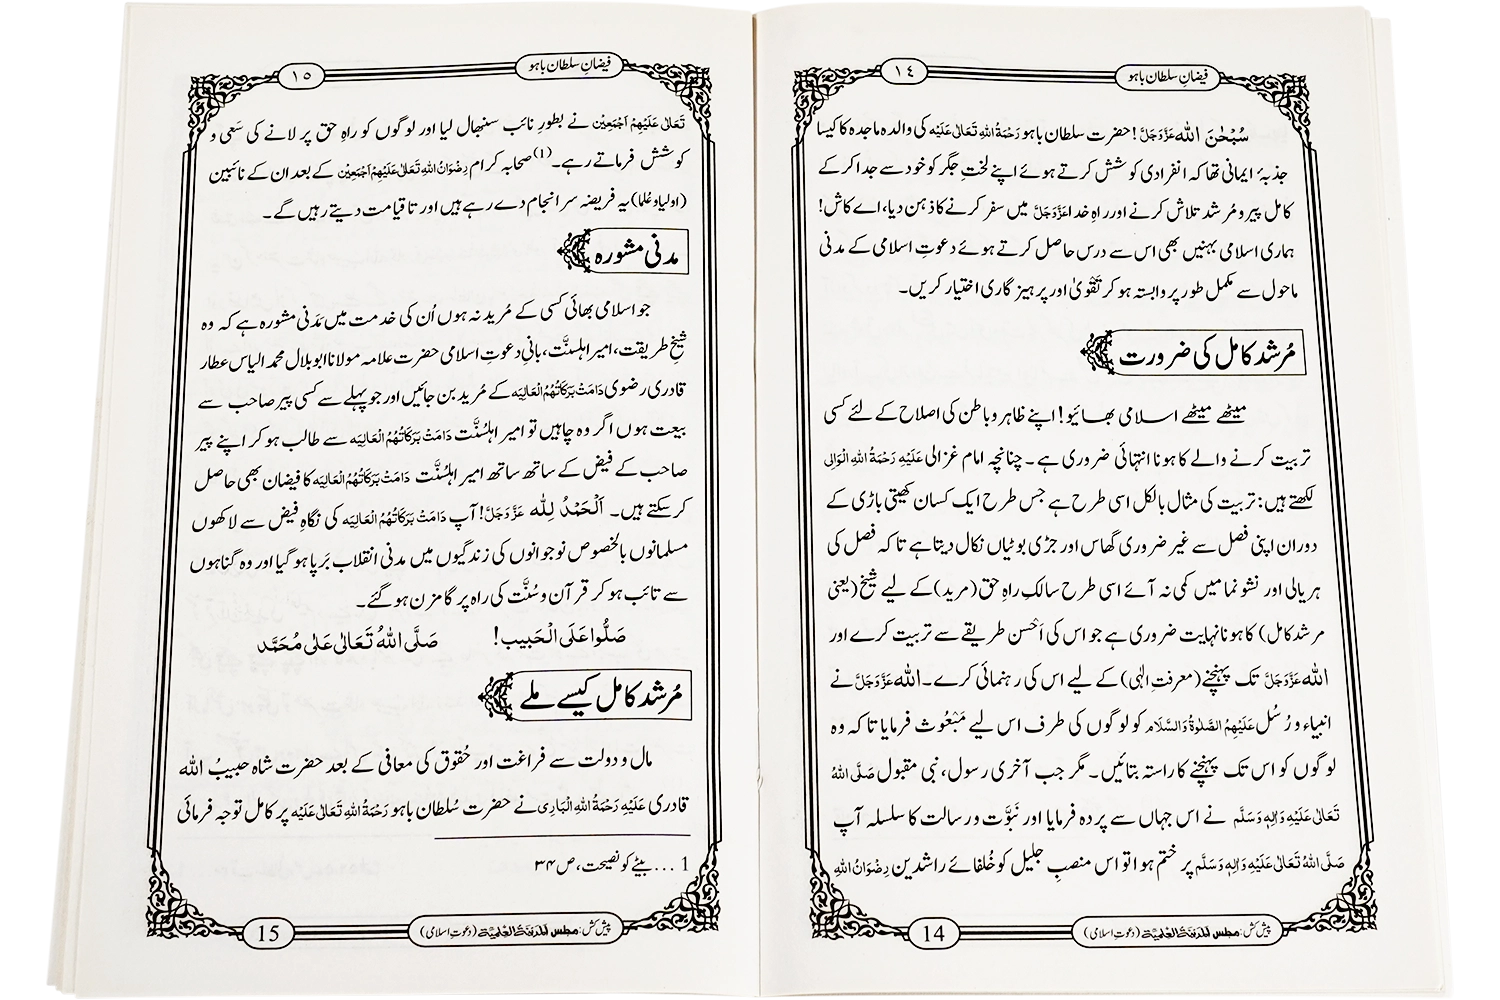 فیضانِ سلطان باہو
١٤
سُبْحٰنَ اللہ عَزَّوَجَلَّ! حضرت سلطان باہو رَحْمَۃُ اللہِ تَعَالٰی عَلَیْہ کی والدہ ماجدہ کا کیسا
جذبۂ ایمانی تھا کہ انفرادی کوشش کرتے ہوئے اپنے لختِ جگر کو خود سے جدا کر کے
کامل پیرو مُرشد تلاش کرنے اور راہِ خدا عَزَّوَجَلَّ میں سفر کرنے کا ذہن دیا، اے کاش!
ہماری اسلامی بہنیں بھی اس سے درس حاصل کرتے ہوئے دعوتِ اسلامی کے مدنی
ماحول سے مکمل طور پر وابستہ ہو کر تَقْویٰ اور پرہیز گاری اختیار کریں۔
مُرشد کامل کی ضرورت
میٹھے میٹھے اسلامی بھائیو! اپنے ظاہر و باطن کی اصلاح کے لئے کسی
تربیت کرنے والے کا ہونا انتہائی ضروری ہے۔ چنانچہ امام غزالی عَلَیْہِ رَحْمَۃُ اللہِ الْوَالِی
لکھتے ہیں: تربیت کی مثال بالکل اسی طرح ہے جس طرح ایک کسان کھیتی باڑی کے
دوران اپنی فصل سے غیر ضروری گھاس اور جڑی بوٹیاں نکال دیتا ہے تاکہ فصل کی
ہریالی اور نشونما میں کمی نہ آئے اسی طرح سالکِ راہِ حق (مرید) کے لیے شیخ (یعنی
مرشد کامل) کا ہونا نہایت ضروری ہے جو اس کی اَحْسن طریقے سے تربیت کرے اور
اللہ عَزَّوَجَلَّ تک پہنچنے (معرفتِ الٰہی) کے لیے اس کی رہنمائی کرے۔ اللہ عَزَّوَجَلَّ نے
انبیاء و رُسُل عَلَیْہِمُ الصَّلٰوۃُ وَالسَّلَام کو لوگوں کی طرف اس لیے مَبْعُوث فرمایا تاکہ وہ
لوگوں کو اس تک پہنچنے کا راستہ بتائیں۔ مگر جب آخری رسول، نبی مقبول صَلَّی اللہُ
تَعَالٰی عَلَیْہِ وَاٰلِہٖ وَسَلَّم نے اس جہاں سے پردہ فرمایا اور نَبُوَّت و رسالت کا سلسلہ آپ
صَلَّی اللہُ تَعَالٰی عَلَیْہِ وَاٰلِہٖ وَسَلَّم پر ختم ہوا تو اس منصبِ جلیل کو خُلفائے راشدین رِضْوَانُ اللہِ
پیش کش: مجلس المدینۃ العلمیۃ (دعوتِ اسلامی)
14
فیضانِ سلطان باہو
١٥
تَعَالٰی عَلَیْہِمْ اَجْمَعِیْن نے بطورِ نائب سنبھال لیا اور لوگوں کو راہِ حق پر لانے کی سَعی و
کوشش فرماتے رہے۔(1) صحابہ کرام رِضْوَانُ اللہِ تَعَالٰی عَلَیْہِمْ اَجْمَعِیْن کے بعد ان کے نائبین
(اولیا و عُلما) یہ فریضہ سر انجام دے رہے ہیں اور تا قیامت دیتے رہیں گے۔
مدنی مشورہ
جو اسلامی بھائی کسی کے مُرید نہ ہوں اُن کی خدمت میں مَدَنی مشورہ ہے کہ وہ
شیخِ طریقت، امیر اہلسنَّت، بانیِ دعوتِ اسلامی حضرت علامہ مولانا ابو بلال محمد الیاس عطار
قادری رضوی دَامَتْ بَرَکَاتُہُمُ الْعَالِیَہ کے مُرید بن جائیں اور جو پہلے سے کسی پیر صاحب سے
بیعت ہوں اگر وہ چاہیں تو امیر اہلسُنَّت دَامَتْ بَرَکَاتُہُمُ الْعَالِیَہ سے طالب ہو کر اپنے پیر
صاحب کے فیض کے ساتھ ساتھ امیر اہلسُنَّت دَامَتْ بَرَکَاتُہُمُ الْعَالِیَہ کا فیضان بھی حاصل
کر سکتے ہیں۔ اَلْحَمْدُ لِلّٰہ عَزَّوَجَلَّ! آپ دَامَتْ بَرَکَاتُہُمُ الْعَالِیَہ کی نگاہِ فیض سے لاکھوں
مسلمانوں بالخصوص نوجوانوں کی زندگیوں میں مدنی انقلاب بَرپا ہو گیا اور وہ گناہوں
سے تائب ہو کر قرآن و سُنَّت کی راہ پر گامزن ہو گئے۔
صَلُّوا عَلَی الْحَبِیب! صَلَّی اللہُ تَعَالٰی عَلٰی مُحَمَّد
مُرشد کامل کیسے ملے
مال و دولت سے فراغت اور حُقوق کی معافی کے بعد حضرت شاہ حبیبُ اللہ
قادری عَلَیْہِ رَحْمَۃُ اللہِ الْبَارِی نے حضرت سُلطان باہو رَحْمَۃُ اللہِ تَعَالٰی عَلَیْہ پر کامل توجہ فرمائی
1 ... بیٹے کو نصیحت، ص ۳۴
پیش کش: مجلس المدینۃ العلمیۃ (دعوتِ اسلامی)
15